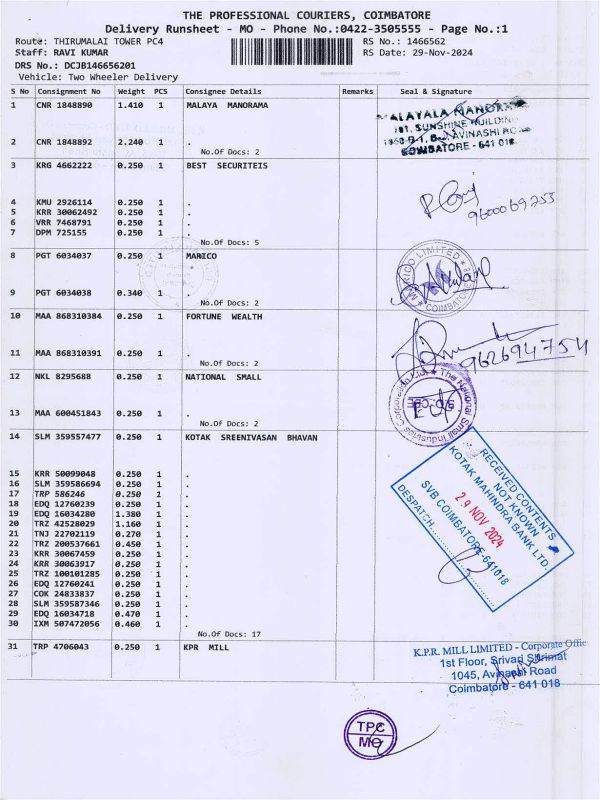 THE PROFESSIONAL COURIERS, COIMBATORE
Delivery Runsheet - MO - Phone No.:0422-3505555 - Page No.:1
Route: THIRUMALAI TOWER PC4
RS No.: 1466562
Staff: RAVI KUMAR
RS Date: 29-Nov-2024
DRS No.: DCJB146656201
Vehicle: Two Wheeler Delivery
S No Consignment No Weight PCS Consignee Details Remarks Seal & Signature
1 CNR 1848890 1.410 1 MALAYA MANORAMA
MALAYALA MANORAMA
SUNSHINE BUILDING
AVINASHI ROAD
COIMBATORE - 641 018
2 CNR 1848892 2.240 1 .
No.Of Docs: 2
3 KRG 4662222 0.250 1 BEST SECURITEIS
9600069255
4 KMU 2926114 0.250 1 .
5 KRR 30062492 0.250 1 .
6 VRR 7468791 0.250 1 .
7 DPM 725155 0.250 1 .
No.Of Docs: 5
8 PGT 6034037 0.250 1 MARICO
MARICO LIMITED
COIMBATORE
9 PGT 6034038 0.340 1 .
No.Of Docs: 2
10 MAA 868310384 0.250 1 FORTUNE WEALTH
9626947754
11 MAA 868310391 0.250 1 .
No.Of Docs: 2
12 NKL 8295688 0.250 1 NATIONAL SMALL
The National Small Industries Corporation Ltd.
13 MAA 600451843 0.250 1 .
No.Of Docs: 2
14 SLM 359557477 0.250 1 KOTAK SREENIVASAN BHAVAN
RECEIVED CONTENTS
NOT KNOWN
KOTAK MAHINDRA BANK LTD.
29 NOV 2024
SVB COIMBATORE-641018
DESPATCH
15 KRR 50099048 0.250 1 .
16 SLM 359586694 0.250 1 .
17 TRP 586246 0.250 1 .
18 EDQ 12760239 0.250 1 .
19 EDQ 16034280 1.380 1 .
20 TRZ 42528029 1.160 1 .
21 TNJ 22702119 0.270 1 .
22 TRZ 200537661 0.450 1 .
23 KRR 30067459 0.250 1 .
24 KRR 30063917 0.250 1 .
25 TRZ 100101285 0.250 1 .
26 EDQ 12760241 0.250 1 .
27 COK 24833837 0.250 1 .
28 SLM 359587346 0.250 1 .
29 EDQ 16034718 0.470 1 .
30 IXM 507472056 0.460 1 .
No.Of Docs: 17
31 TRP 4706043 0.250 1 KPR MILL
K.P.R. MILL LIMITED - Corporate Office
1st Floor, Srivari Shrimat
1045, Avinashi Road
Coimbatore - 641 018
TPC
MO